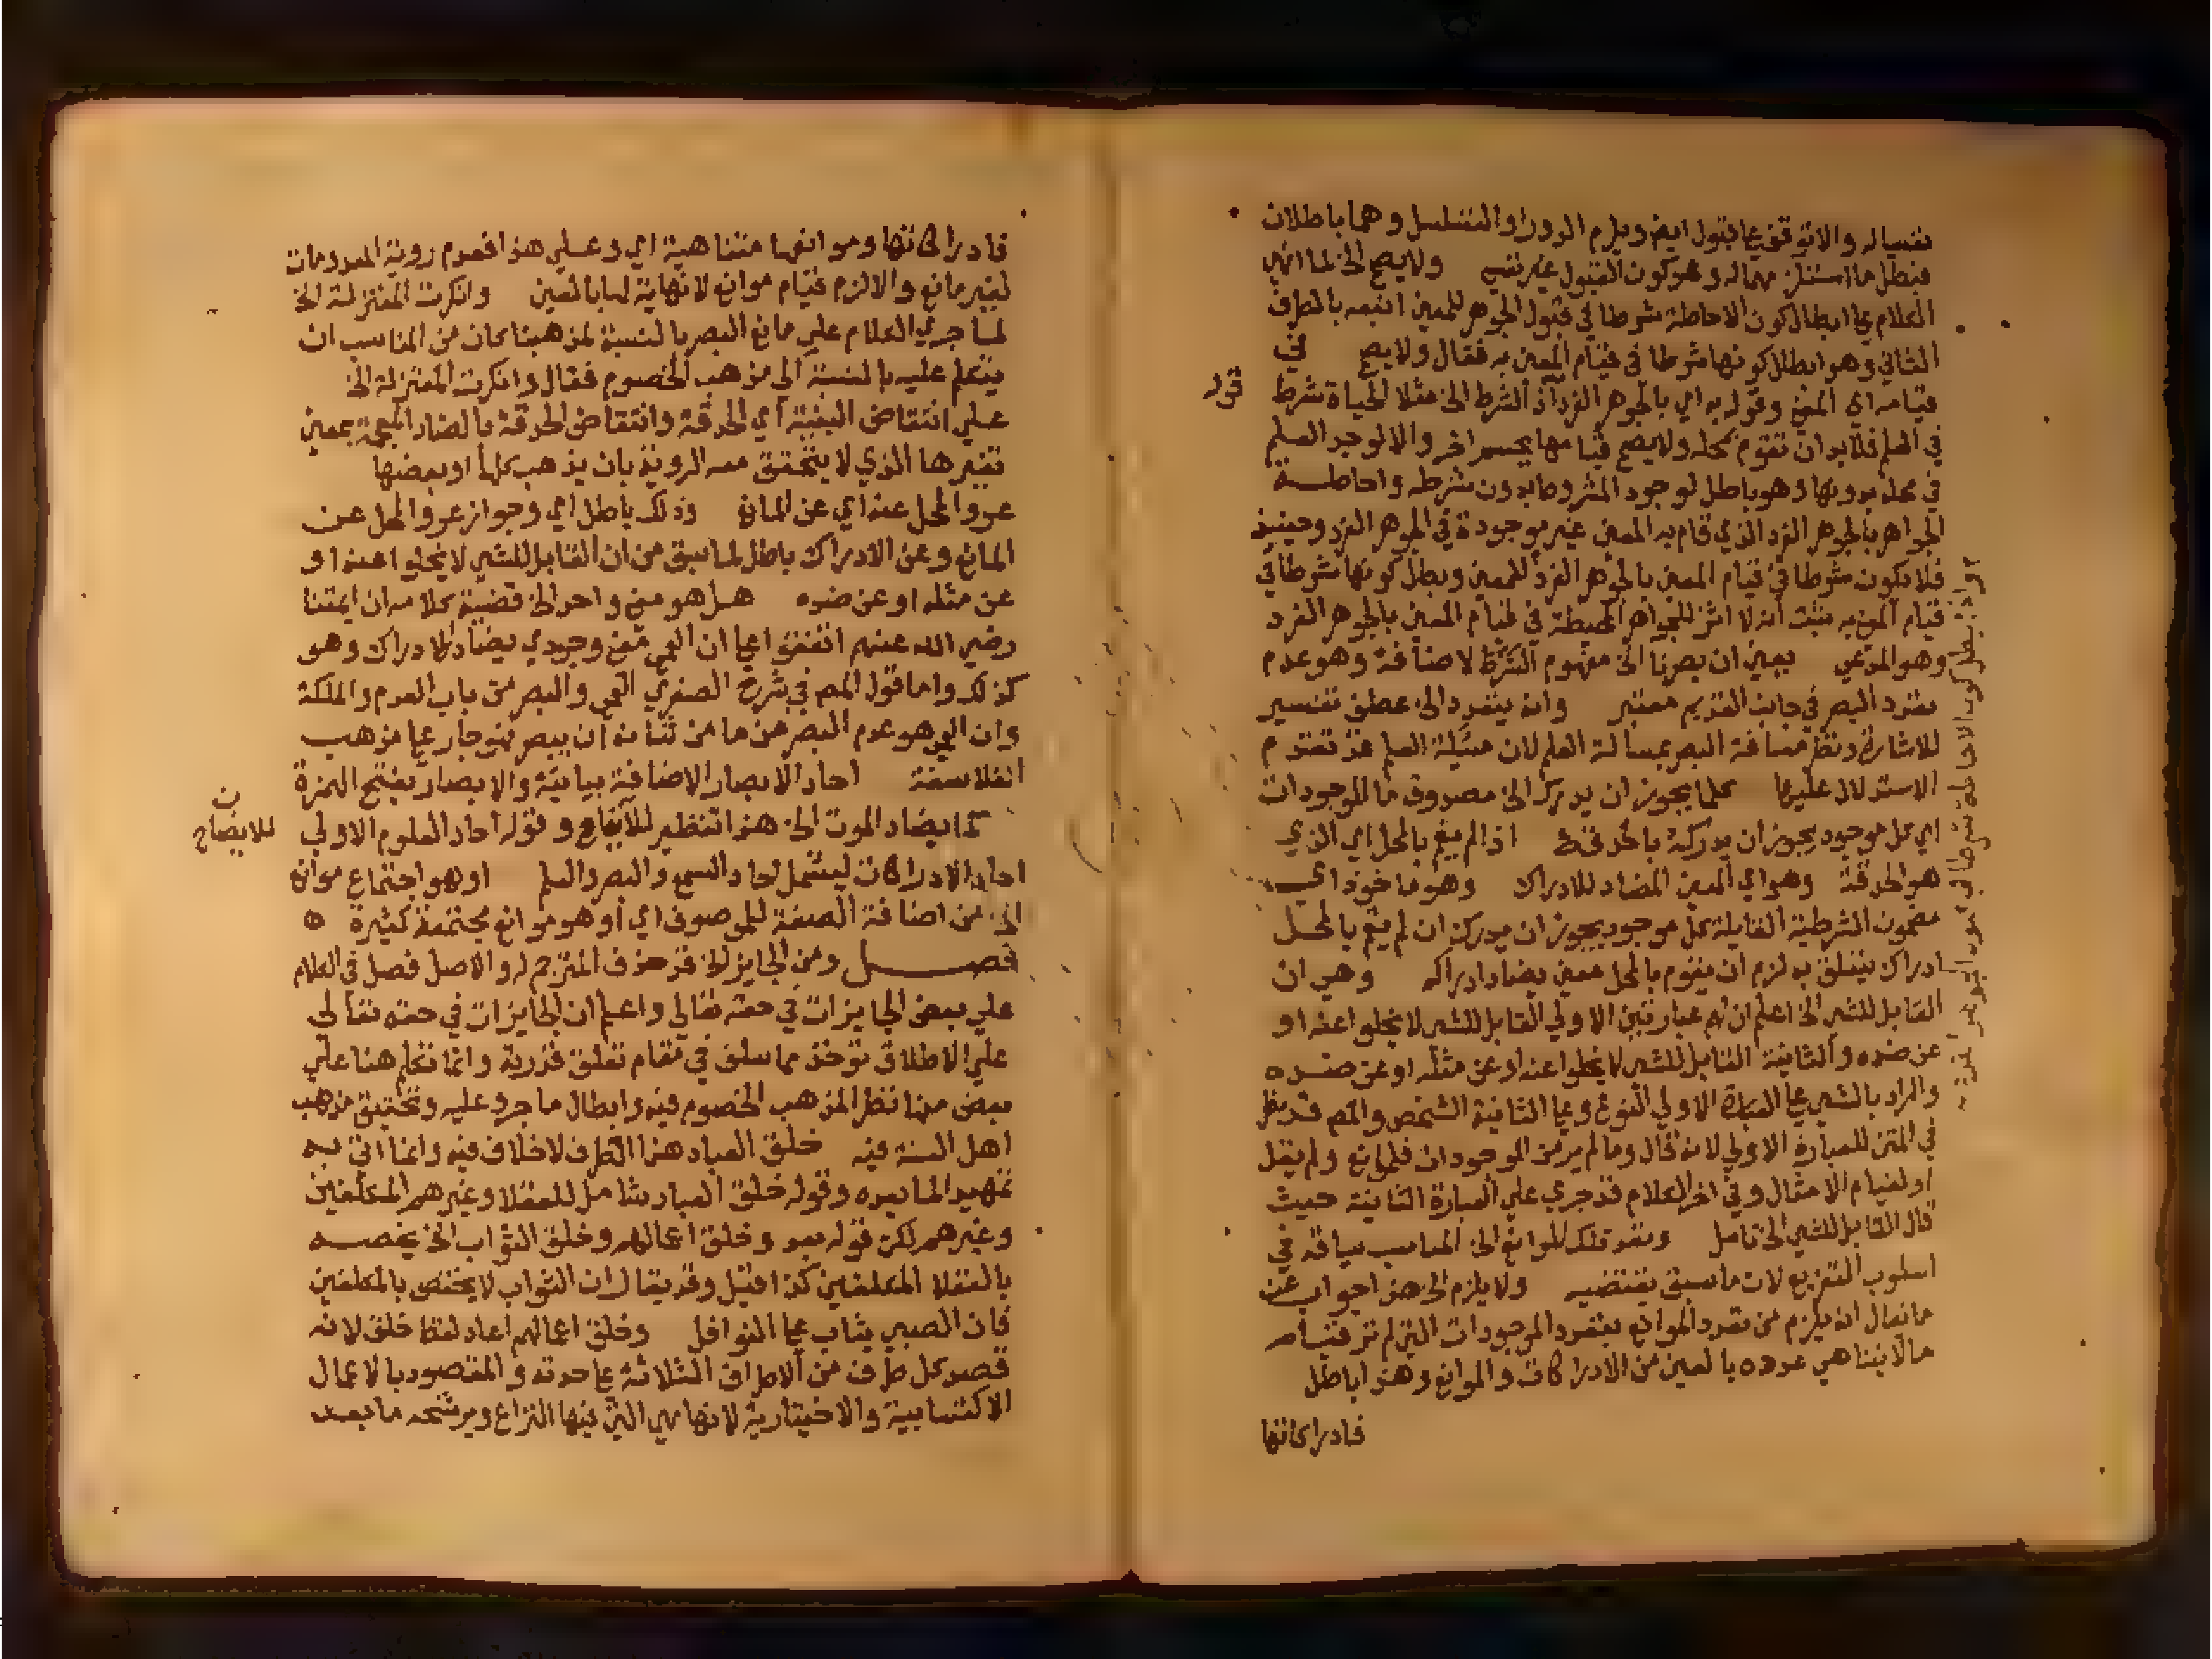 نفسيا له والا توقف على قبول ايضا ويلزم الدور او التسلسل وهما باطلان
فبطل ما استلزمهما له وهو كون القبول غير نفسي ولا يصح الخ لما انهي
الكلام على ابطال كون الاحاطة شرطا في قبول الجوهر للمعين اتبعه بالطرف
الثاني وهو ابطال كونها شرطا في قيام المعين به فقال ولا يصح في
قيامه اي المعنى وقوله به اي بالجوهر الفرد اذ الشرط الخ مثلا الحياة شرط
في العلم فلا بد ان تقوم بمحله ولا يصح قيامها بجسم اخر والا لوجد العلم
في محل بدونها وهو باطل لوجود المشروط بدون شرطه واحاطـة
الجواهر بالجوهر الفرد الذي قام به المعين غير موجودة في الجوهر الفرد وحينيذ
فلا يكون شرطا في قيام المعين بالجوهر الفرد للمعين وبطل كونها شرطا في
قيام المعنى به فثبت انه لا اثر للجواهر المحيطة في قيام المعين بالجوهر الفرد
وهو المدعي يعين ان بصرنا الخ مفهوم الشرط لا ضافة وهو عدم
تعدد البصر في جانب القديم معتبر وانه يتعدد الخ عطف تفسير
للاشارة ونظر مسافة البصر بمسألة العلم لان مسئلة العلم قد تقدم
الاستدلال عليها كلما يجوز ان يدرك الخ مصدوق ما الموجودات
اي كل موجود يجوز ان يدركه بالحدقة اذ لم يقم بالمحل اي الذي
هو الحدقة وهو اي المعين المضاد للادراك وهو ماخوذ اي
مضمون الشرطية القايلة كل موجود يجوز ان يدرك ان لم يقم بالمحـل
ادراك يتعلق به لزم ان يقوم بالمحل معين يضاد ادراكه وهي ان
القابل للشي الخ اعلم ان لهم عبارتين الاولي القابل للشي لا يخلو اعنه او
عن ضده والثانية القابل للشي لا يخلو اعنه او عن مثله او عن ضـده
والمراد بالشي على العبارة الاولي النوع وعلى الثانية الشخص والمص قد نظر
في المتن للعبارة الاولي لانه قال وما لم ير من الموجودات فلموانع ولم يقل
اولقيام الامثال وفي اخر الكلام قد جري علي العبارة الثانية حيث
قال القابل للشي الخ تامل وتعدد تلك الموانع الخ المناسب سياقه في
اسلوب التفريع لان ما سبق يقتضيه ولا يلزم الخ هذا جواب عن
ما يقال انه يلزم من تعدد الموانع بتعدد الموجودات التي لم تر قيـام
مالا يتناهي عدده بالعين من الادراكات والموانع وهذا باطل
فادراكاتها
فادراكاتها وموانعها متناهية اي وعـلي هذا فعدم روية المعدومات
لغير مانع والا لزم قيام موانع لا نهاية لها بالعين وانكرت المعتزلة الخ
لما جري الكلام علي مانع البصر بالنسبة لمذهبنا كان من المناسب ان
يتكلم عليه بالنسبة الى مذهب الخصوم فقال وانكرت المعتزلة الخ
عـلي انتقاض البنية اي الحدقة وانتقاض الحدقة بالضاد المعجمة بمعين
تغيرها الذي لا يتحقق معه الروية بان يذهب كلها او بعضها
عرو المحل عنه اي عن المانع وذلك باطل اي وجواز عرو المحل عـن
المانع وعن الادراك باطل لما سبق من ان القابل للشي لا يخلو اعنه او
عن مثله او عن ضده هـل هو معنى واحد الخ قضية كلامه ان ايمتنا
رضي الله عنهم اتفقوا على ان العمي معنى وجودي يضاد الادراك وهو
كذلك واما قول المص في شرح الصغري العمي والبصر من باب العدم والملكة
وان العمي هو عدم البصر من ما من شانه ان يبصر فهو جار على مذهـب
الفلاسفة احاد الابصار الاضافة بيانية والابصار بفتح الهمزة
كما يضاد الموت الخ هذا تنظير للايضاح وقوله احاد العلوم الاولي
احاد الادراكات ليشمل احاد السمع والبصر والعلم او هو اجتماع موانع
الخ من اضافة الصفة للموصوف اي او هو موانع مجتمعة كثيرة ٥
فصـــل ومن الجايز الخ قد حذف المترجم له والاصل فصل في الكلام
علي بعض الجايزات في حقه تعالي واعلم ان الجايزات في حقه تعالي
علي الاطلاق توخذ مما سلف في مقام تعلق قدرته وانما تكلم هنا علي
بعض منها نظرا لمذهب الخصوم فيه وابطال ما جروا عليه وتحقيق مذهب
اهل السنة فيه خلق العباد هذا الطرف لا خلاف فيه وانما اتي بـه
تمهيدا لما بعده وقوله خلق العباد شامل للعقلا وغيرهم المكلفين
وغيرهم لكن قوله بعد وخلق اعمالهم وخلق الثواب الخ يخصـه
بالعقلا المكلفين كذا قيل وقد يقال ان الثواب لا يختص بالمكلفين
فان الصبي يثاب على النوافل وخلق اعمالهم اعاد لفظ خلق لانه
قصد كل طرف من الاطراف الثلاثة على حدته والمقصود بالاعمال
الاكتسابية والاختيارية لانها هي التي فيها النزاع ويرشحه ما بعـد
للايضاح